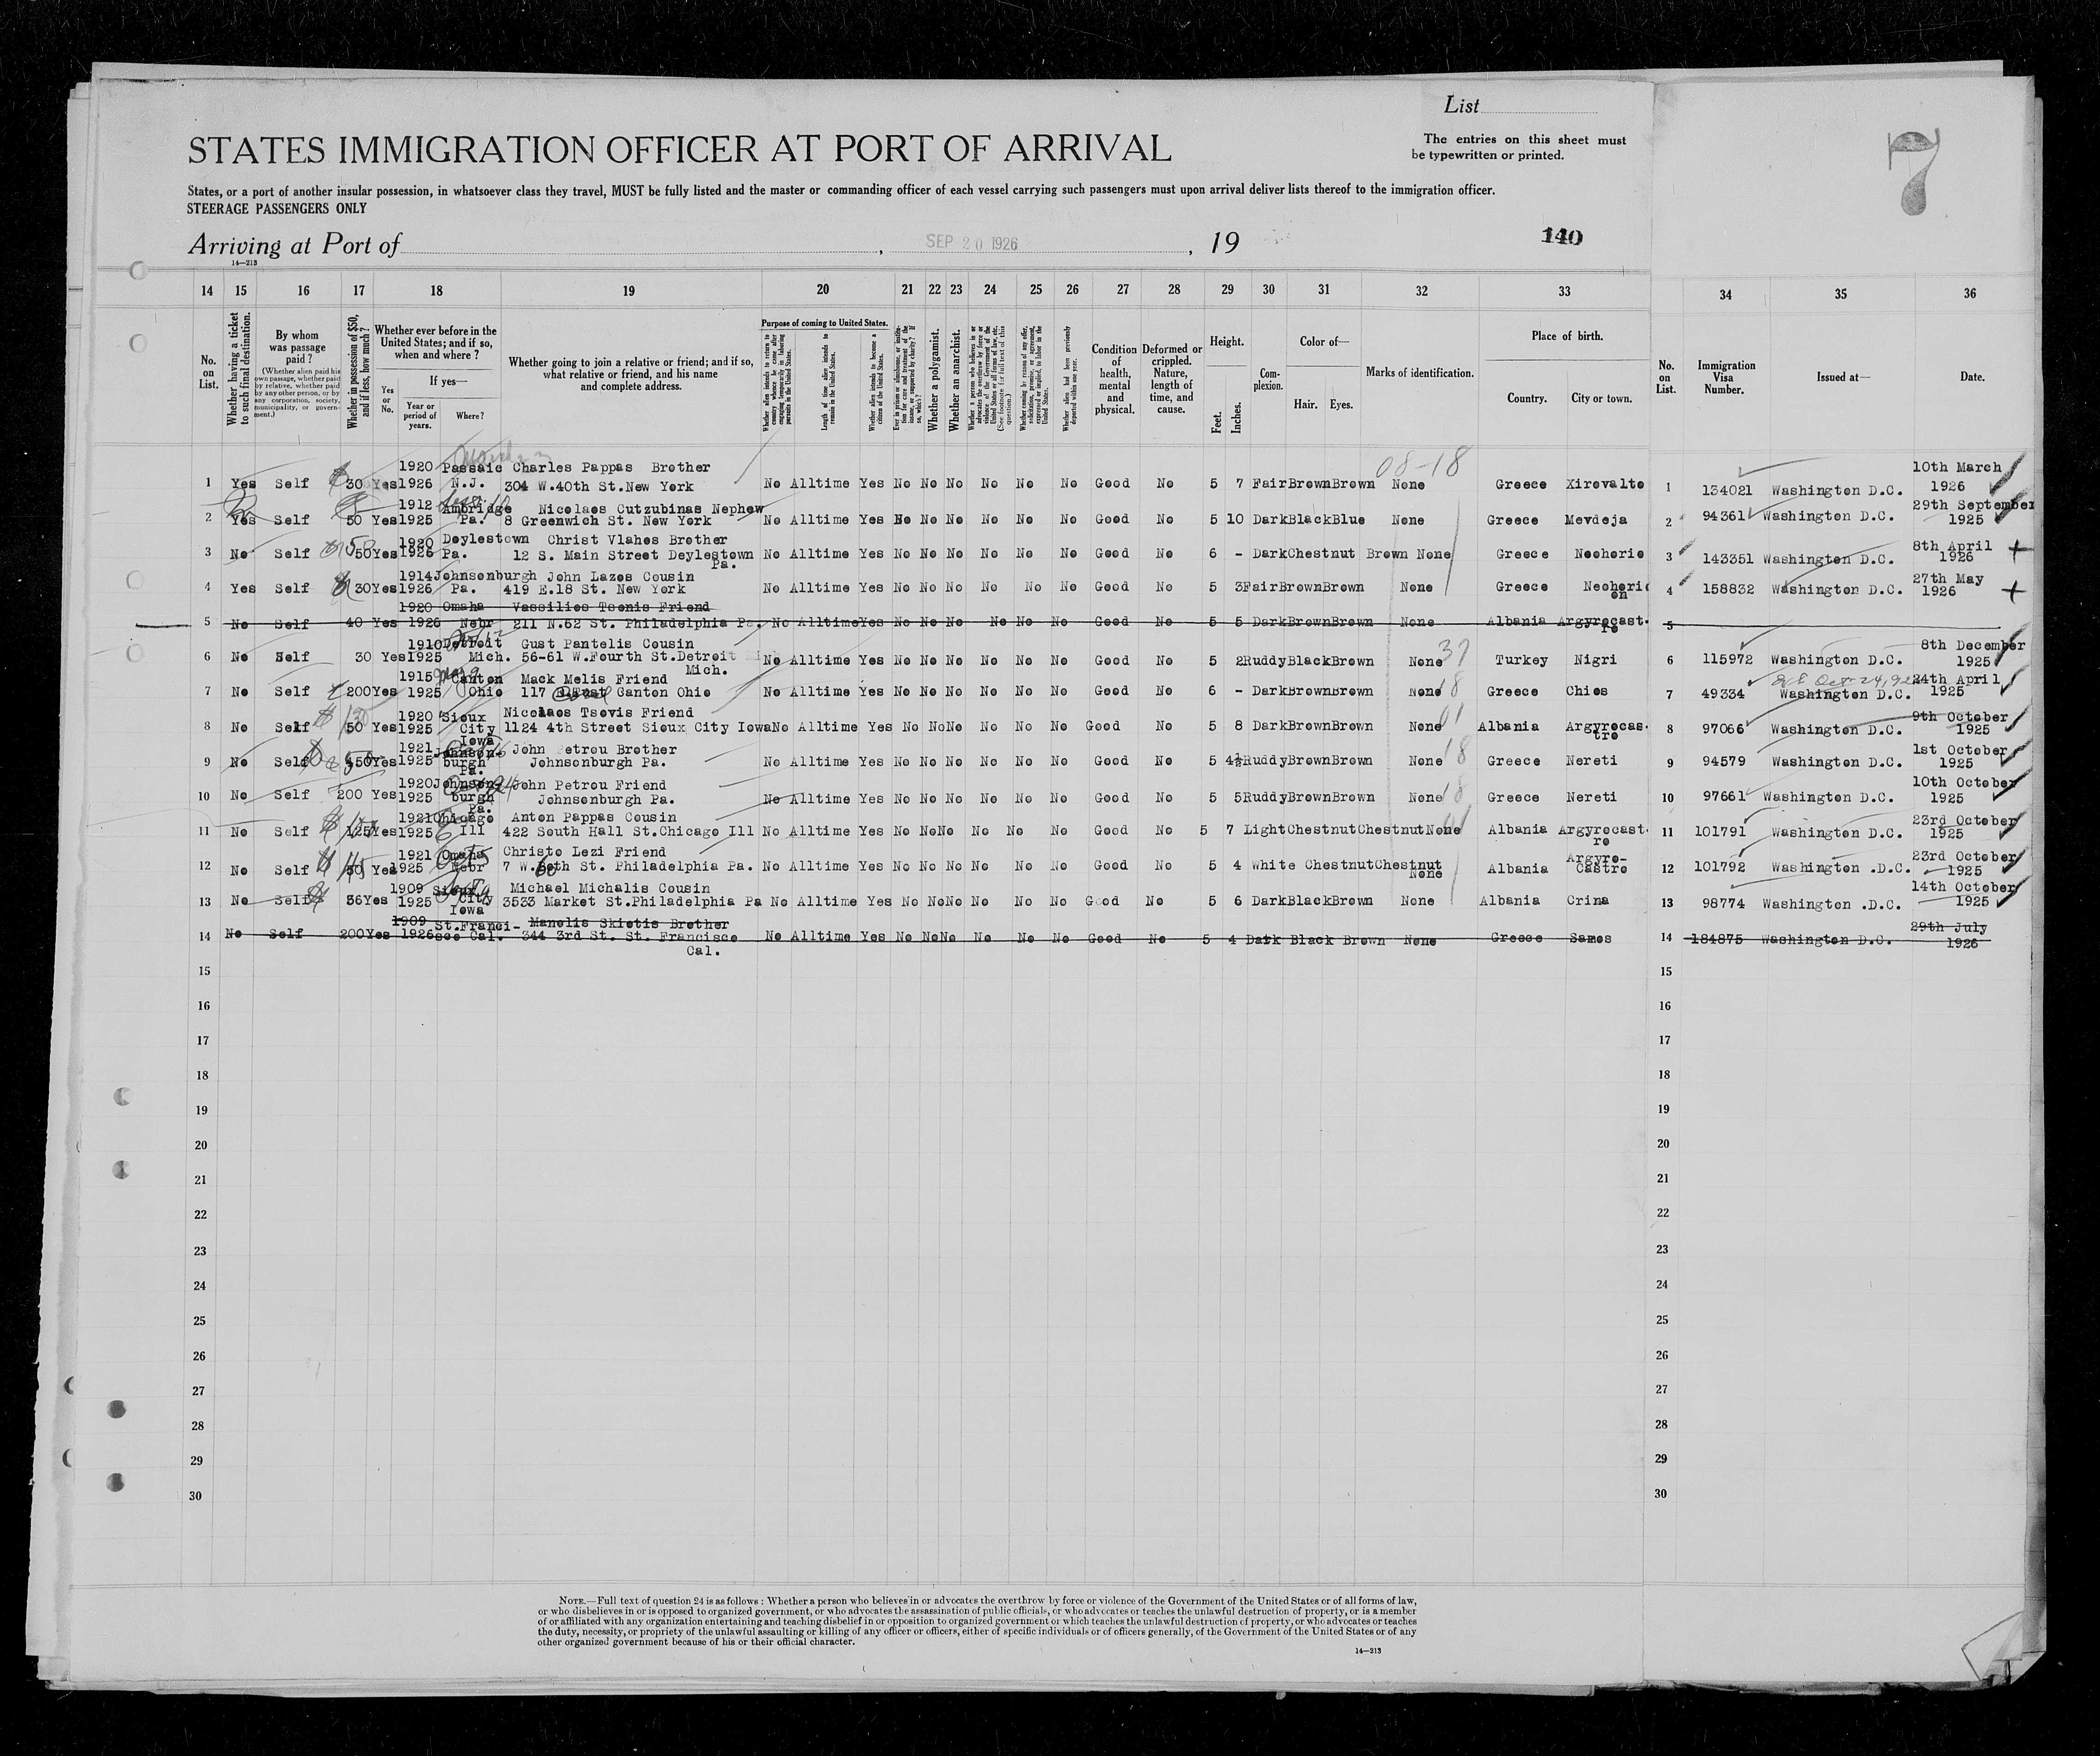 List
STATES IMMIGRATION OFFICER AT PORT OF ARRIVAL
The entries on this sheet must
be typewritten or printed.
7
States, or a port of another insular possession, in whatsoever class they travel, MUST be fully listed and the master or commanding officer of each vessel carrying such passengers must upon arrival deliver lists thereof to the immigration officer.
STEERAGE PASSENGERS ONLY
Arriving at Port of , SEP 20 1926 , 19 140
14—213
14 15 16 17 18 19 20 21 22 23 24 25 26 27 28 29 30 31 32 33 34 35 36
No. on List.
Whether having a ticket to such final destination.
By whom was passage paid?
(Whether alien paid his own passage, whether paid by relative, whether paid by any other person, or by any corporation, society, municipality, or government.)
Whether in possession of $50, and if less, how much?
Whether ever before in the United States; and if so, when and where?
Yes or No.
If yes—
Year or period of years.
Where?
Whether going to join a relative or friend; and if so, what relative or friend, and his name and complete address.
Purpose of coming to United States.
Length of time alien intends to remain in the United States.
Whether alien intends to become a citizen of the United States.
Whether a polygamist.
Whether an anarchist.
Condition of health, mental and physical.
Deformed or crippled. Nature, length of time, and cause.
Height.
Feet. Inches.
Complexion.
Color of—
Hair. Eyes.
Marks of identification.
Place of birth.
Country. City or town.
No. on List.
Immigration Visa Number.
Issued at—
Date.
08-18
1920 Passaic Charles Pappas Brother 10th March
1 Yes Self 30 Yes 1926 N.J. 304 W.40th St.New York No Alltime Yes No No No No No No Good No 5 7 Fair Brown Brown None Greece Xirovalto 1 134021 Washington D.C. 1926
1912 Ambridge Nicolaos Cutzubinas Nephew 29th September
2 Yes Self 50 Yes 1925 Pa. 8 Greenwich St. New York No Alltime Yes No No No No No No Good No 5 10 Dark Black Blue None Greece Mevdeja 2 94361 Washington D.C. 1925
1920 Doylestown Christ Vlahos Brother 8th April
3 No Self 50 Yes 1926 Pa. 12 S. Main Street Deylestown Pa. No Alltime Yes No No No No No No Good No 6 - Dark Chestnut Brown None Greece Neohorio 3 143351 Washington D.C. 1926
1914 Johnsonburgh John Lazos Cousin 27th May
4 Yes Self 30 Yes 1926 Pa. 419 E.18 St. New York No Alltime Yes No No No No No No Good No 5 3 Fair Brown Brown None Greece Neohorion 4 158832 Washington D.C. 1926
1920 Omaha Vassilios Tsonis Friend
5 No Self 40 Yes 1926 Nebr 211 N.62 St. Philadelphia Pa. No Alltime Yes No No No No No No Good No 5 5 Dark Brown Brown None Albania Argyrocastro 5
1910 Detroit Gust Pantelis Cousin 37 8th December
6 No Self 30 Yes 1925 Mich. 56-61 W.Fourth St.Detroit Mich. No Alltime Yes No No No No No No Good No 5 2 Ruddy Black Brown None Turkey Nigri 6 115972 Washington D.C. 1925
1915 Canton Mack Melis Friend 24th April
7 No Self 200 Yes 1925 Ohio 117 Canton Ohio No Alltime Yes No No No No No No Good No 6 - Dark Brown Brown None 18 Greece Chios 7 49334 Washington D.C. 1925
1920 Sioux Nicolaos Tsovis Friend 9th October
8 No Self 50 Yes 1925 City Iowa 1124 4th Street Sioux City Iowa No Alltime Yes No No No No No No Good No 5 8 Dark Brown Brown None 01 Albania Argyrocastro 8 97066 Washington D.C. 1925
1921 Johnsonburgh Pa. John Petrou Brother 1st October
9 No Self 50 Yes 1925 Johnsonburgh Pa. No Alltime Yes No No No No No No Good No 5 4½ Ruddy Brown Brown None 18 Greece Nereti 9 94579 Washington D.C. 1925
1920 Johnsonburgh Pa. John Petrou Friend 10th October
10 No Self 200 Yes 1925 Johnsenburgh Pa. No Alltime Yes No No No No No No Good No 5 5 Ruddy Brown Brown None 18 Greece Nereti 10 97661 Washington D.C. 1925
1921 Chicago Anton Pappas Cousin 23rd October
11 No Self 125 Yes 1925 Ill 422 South Hall St.Chicago Ill No Alltime Yes No No No No No No Good No 5 7 Light Chestnut Chestnut None 01 Albania Argyrocastro 11 101791 Washington D.C. 1925
1921 Omaha Christo Lezi Friend 23rd October
12 No Self 50 Yes 1925 Nebr 7 W.60th St. Philadelphia Pa. No Alltime Yes No No No No No No Good No 5 4 White Chestnut Chestnut None Albania Argyro-Castro 12 101792 Washington .D.C. 1925
1909 Sioux City Iowa Michael Michalis Cousin 14th October
13 No Self 36 Yes 1925 3533 Market St.Philadelphia Pa No Alltime Yes No No No No No No Good No 5 6 Dark Black Brown None Albania Crina 13 98774 Washington .D.C. 1925
1909 St.Franci- Manolis Skietis Brother 29th July
14 No Self 200 Yes 1926 sco Cal. 344 3rd St. St. Francisco Cal. No Alltime Yes No No No No No No Good No 5 4 Dark Black Brown None Greece Samos 14 184875 Washington D.C. 1926
15 15
16 16
17 17
18 18
19 19
20 20
21 21
22 22
23 23
24 24
25 25
26 26
27 27
28 28
29 29
30 30
NOTE.—Full text of question 24 is as follows: Whether a person who believes in or advocates the overthrow by force or violence of the Government of the United States or of all forms of law,
or who disbelieves in or is opposed to organized government, or who advocates the assassination of public officials, or who advocates or teaches the unlawful destruction of property, or is a member
of or affiliated with any organization entertaining and teaching disbelief in or opposition to organized government or which teaches the unlawful destruction of property, or who advocates or teaches
the duty, necessity, or propriety of the unlawful assaulting or killing of any officer or officers, either of specific individuals or of officers generally, of the Government of the United States or of any
other organized government because of his or their official character.
14—213